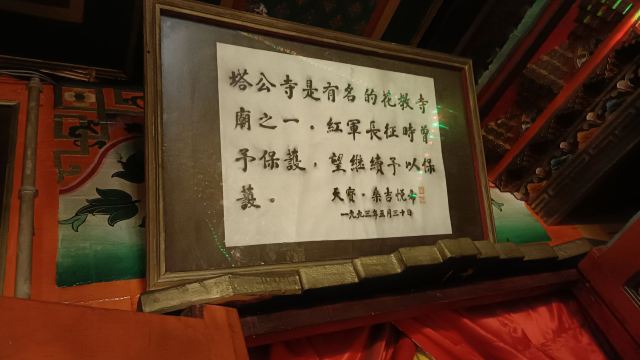 塔公寺是有名的花教寺
廟之一．紅軍長征時曾
予保護，望繼續予以保
護。
天寶·桑吉悅希
一九九三年五月三十日